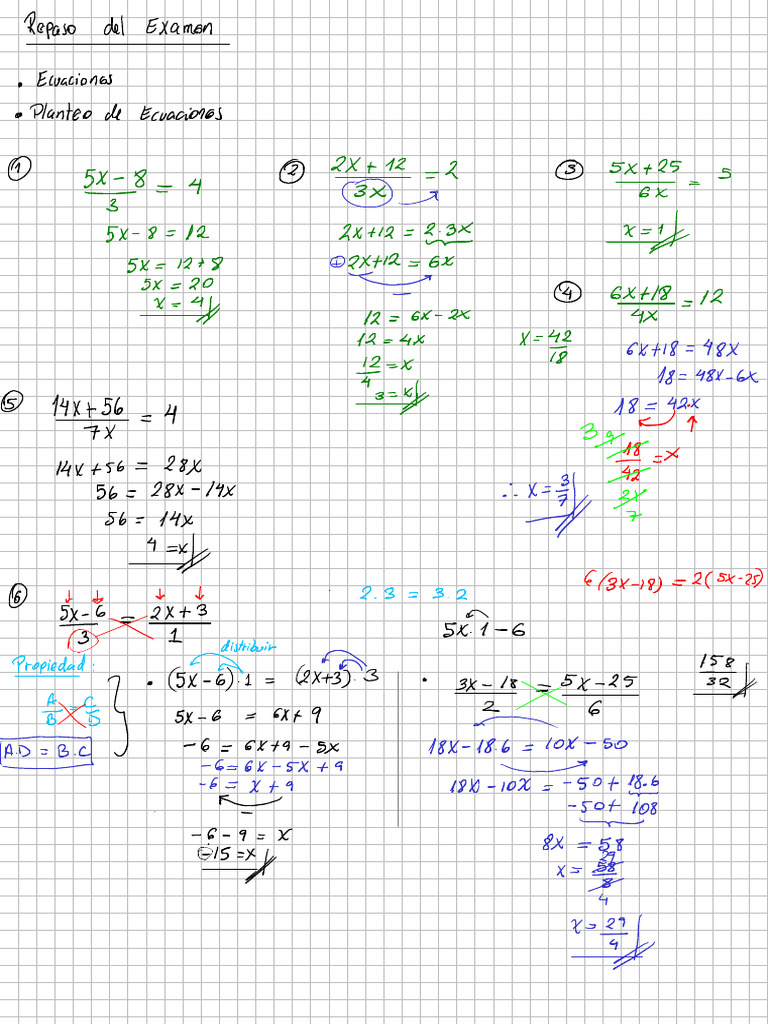 Repaso del Examen
• Ecuaciones
• Planteo de Ecuaciones
① (5x - 8)/3 = 4
5x - 8 = 12
5x = 12 + 8
5x = 20
x = 4
② (2x + 12)/3x = 2
2x + 12 = 2·3x
+ 2x + 12 = 6x
−
12 = 6x - 2x
12 = 4x
12/4 = x
3 = x
③ (5x + 25)/6x = 5
x = 1
④ (6x + 18)/4x = 12
x = 42/18
6x + 18 = 48x
18 = 48x - 6x
18 = 42·x
3 9
18/42 = x
21
7
∴ x = 3/7
⑤ (14x + 56)/7x = 4
14x + 56 = 28x
56 = 28x - 14x
56 = 14x
4 = x
⑥ (5x - 6)/3 = (2x + 3)/1
Propiedad:
A/B = C/D
A.D = B.C
distribuir
• (5x - 6)·1 = (2x + 3)·3
5x - 6 = 6x + 9
-6 = 6x + 9 - 5x
-6 = 6x - 5x + 9
-6 = x + 9
−
-6 - 9 = x
-15 = x
2.3 = 3.2
5x·1 - 6
6(3x - 18) = 2(5x - 25)
• (3x - 18)/2 = (5x - 25)/6
18x - 18.6 = 10x - 50
18x - 10x = -50 + 18.6
-50 + 108
8x = 58
29
x = 58/8
4
x = 29/4
158/32